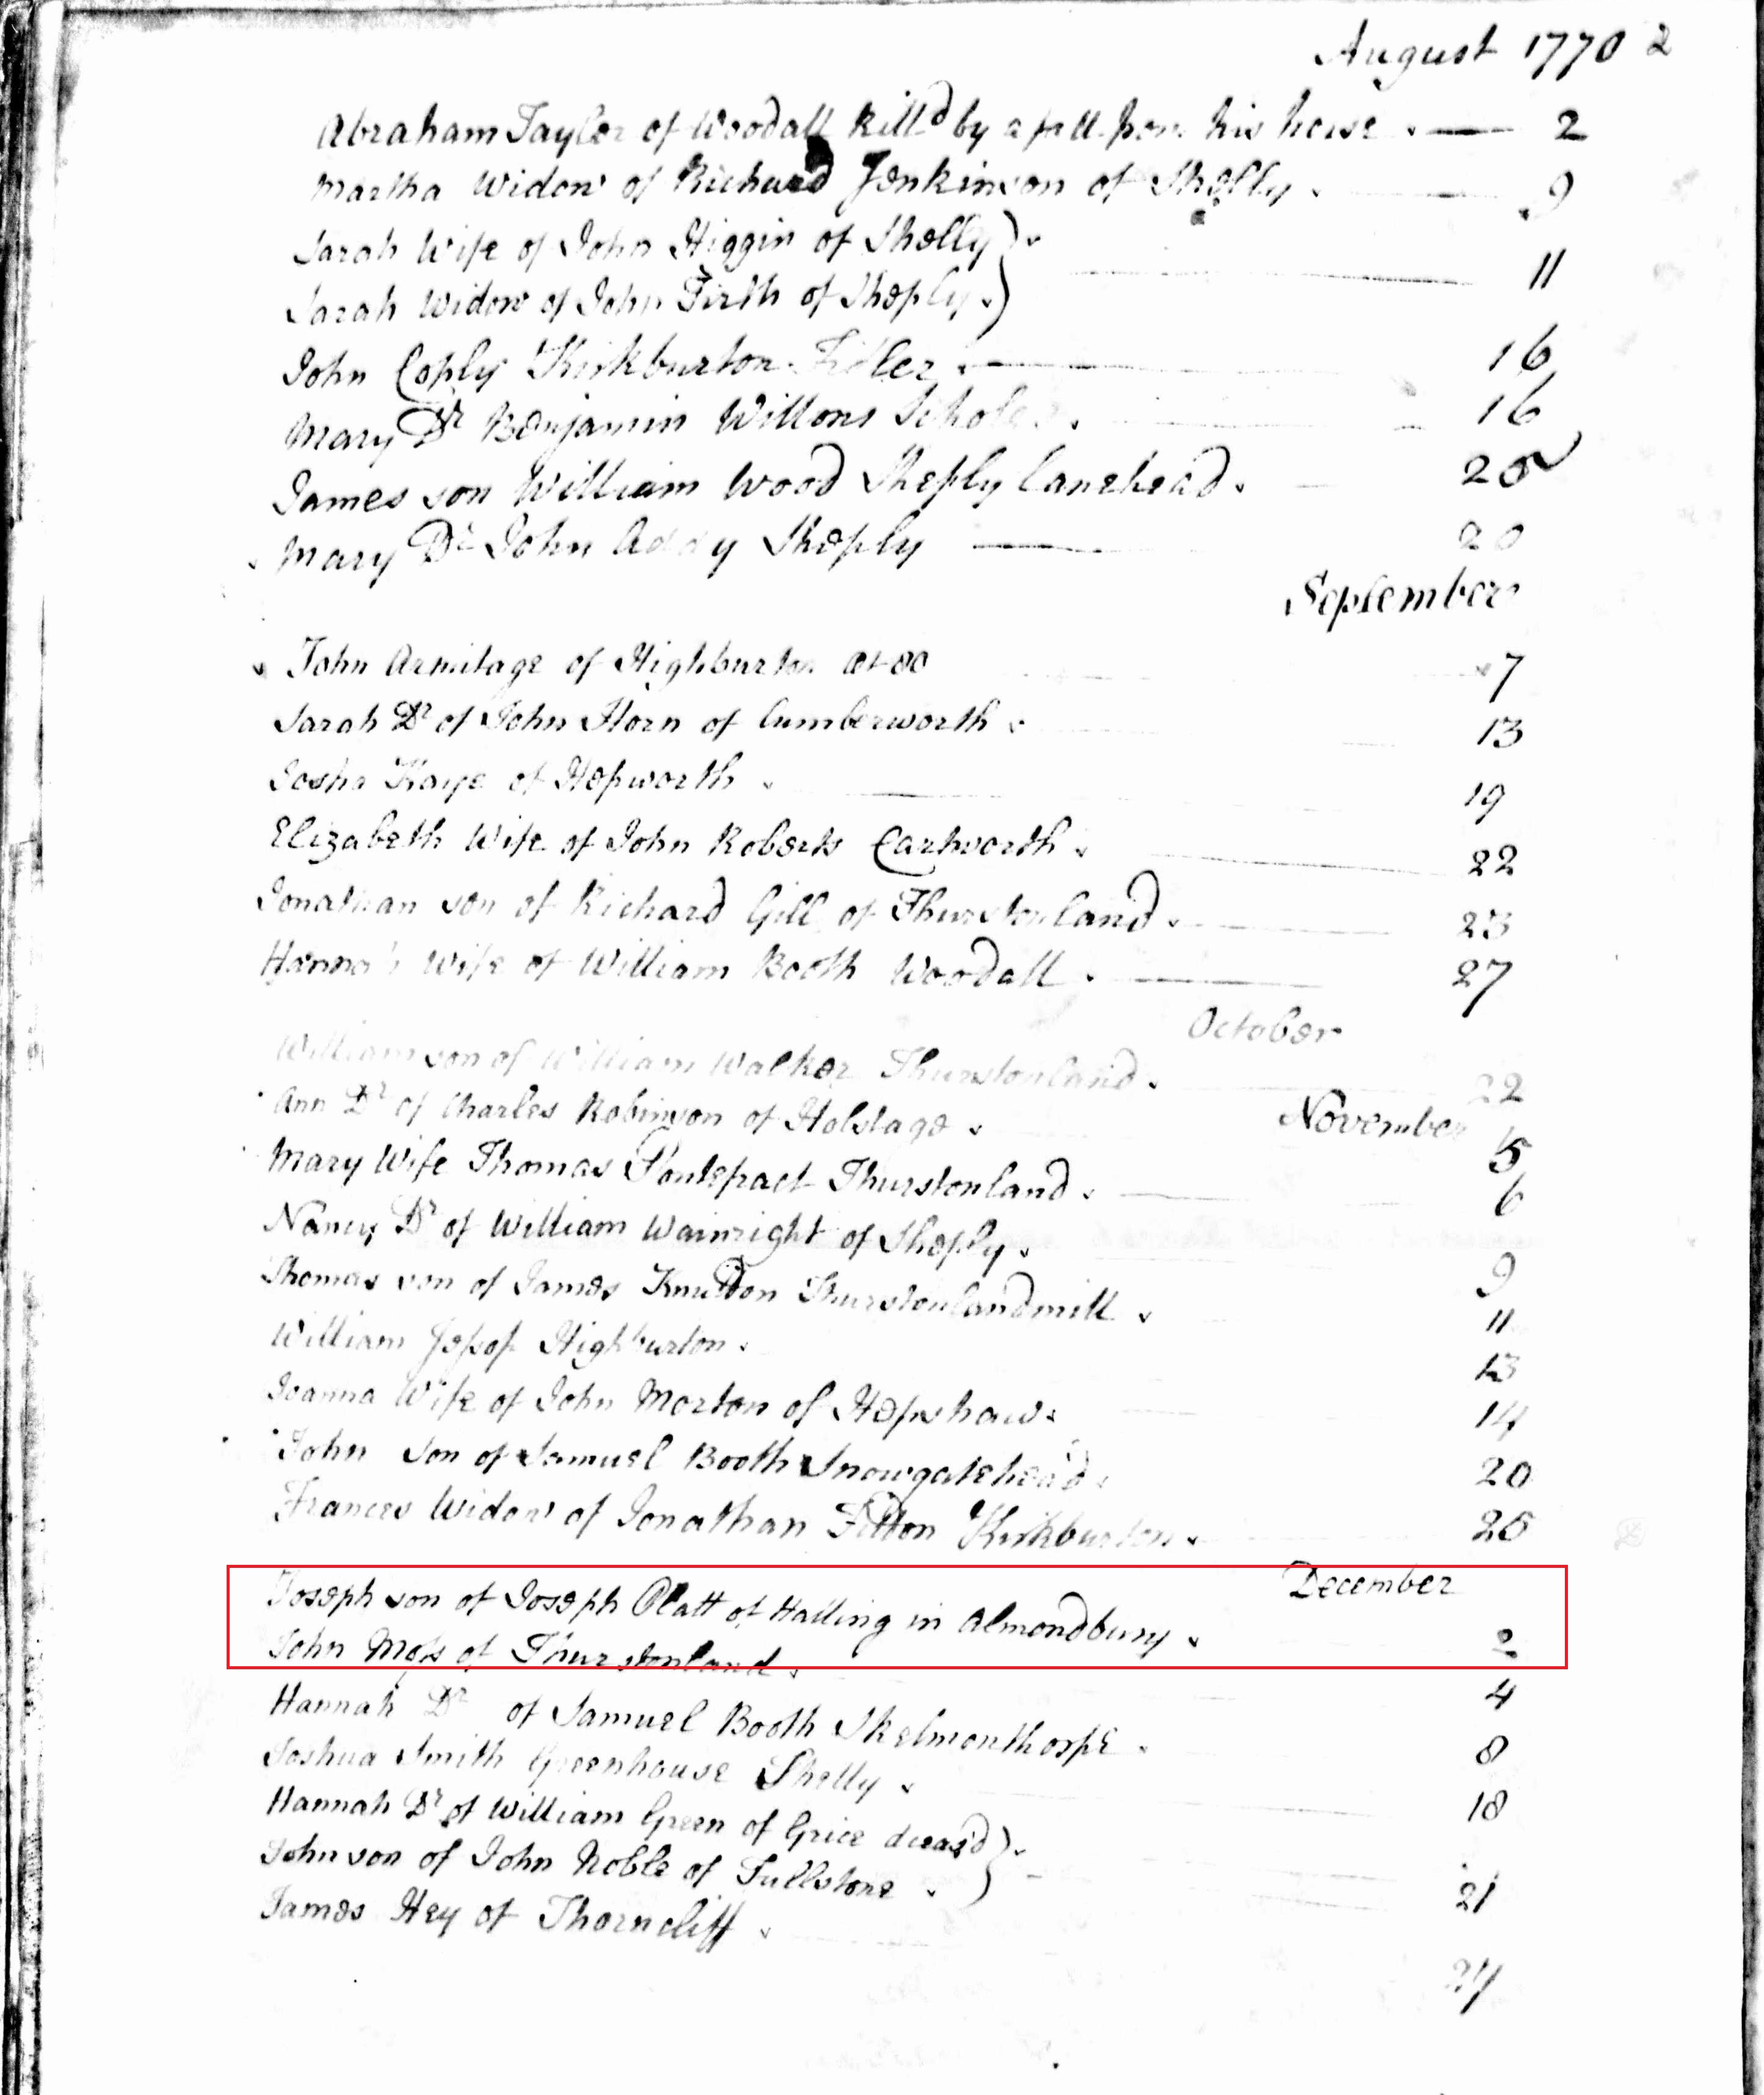 August 1770 2
Abraham Taylor of Woodall Kill'd by a fall from his horse . — 2
Martha Widow of Richard Jenkinson of Shelly . 9
Sarah Wife of John Higgin of Shelly
Sarah Widow of John Firth of Sheply . 11
John Coply Kirkburton Fidler . — 16
Mary Dr Benjamin Wittons Schole . 16
James son William Wood Sheply Lanehead . 20
Mary Dr John Addy Sheply — 20
September
John Armitage of Highburton 7
Sarah Dr of John Horn of Cumberworth . 13
Josha Kaye of Hepworth . 19
Elizabeth Wife of John Roberts Cartworth . 22
Jonathan son of Richard Gill of Thurstonland . 23
Hannah Wife of William Booth Woodall . — 27
October
William son of William Walker Thurstonland . 22
November
Ann Dr of Charles Robinson of Holstage . 5
Mary Wife Thomas Pontefract Thurstonland . — 6
Nancy Dr of William Wainright of Sheply . 9
Thomas son of James Thurstonlandmill . 11
William Jepsop Highburton . 13
Joanna Wife of John Morton of Hepshaw . 14
John Son of Samuel Booth Snowgatehead . 20
Frances Widow of Jonathan Fitton Kirkburton . 25
December
Joseph son of Joseph Platt of Halling in Almondbury . 2
John Moss of Thurstonland . 4
Hannah Dr of Samuel Booth Skelmonthorpe . 8
Joshua Smith Greenhouse Shelly . 18
Hannah Dr of William Green of Grice deceas'd
John son of John Noble of Fullstone . 21
James Hey of Thorncliff . 24